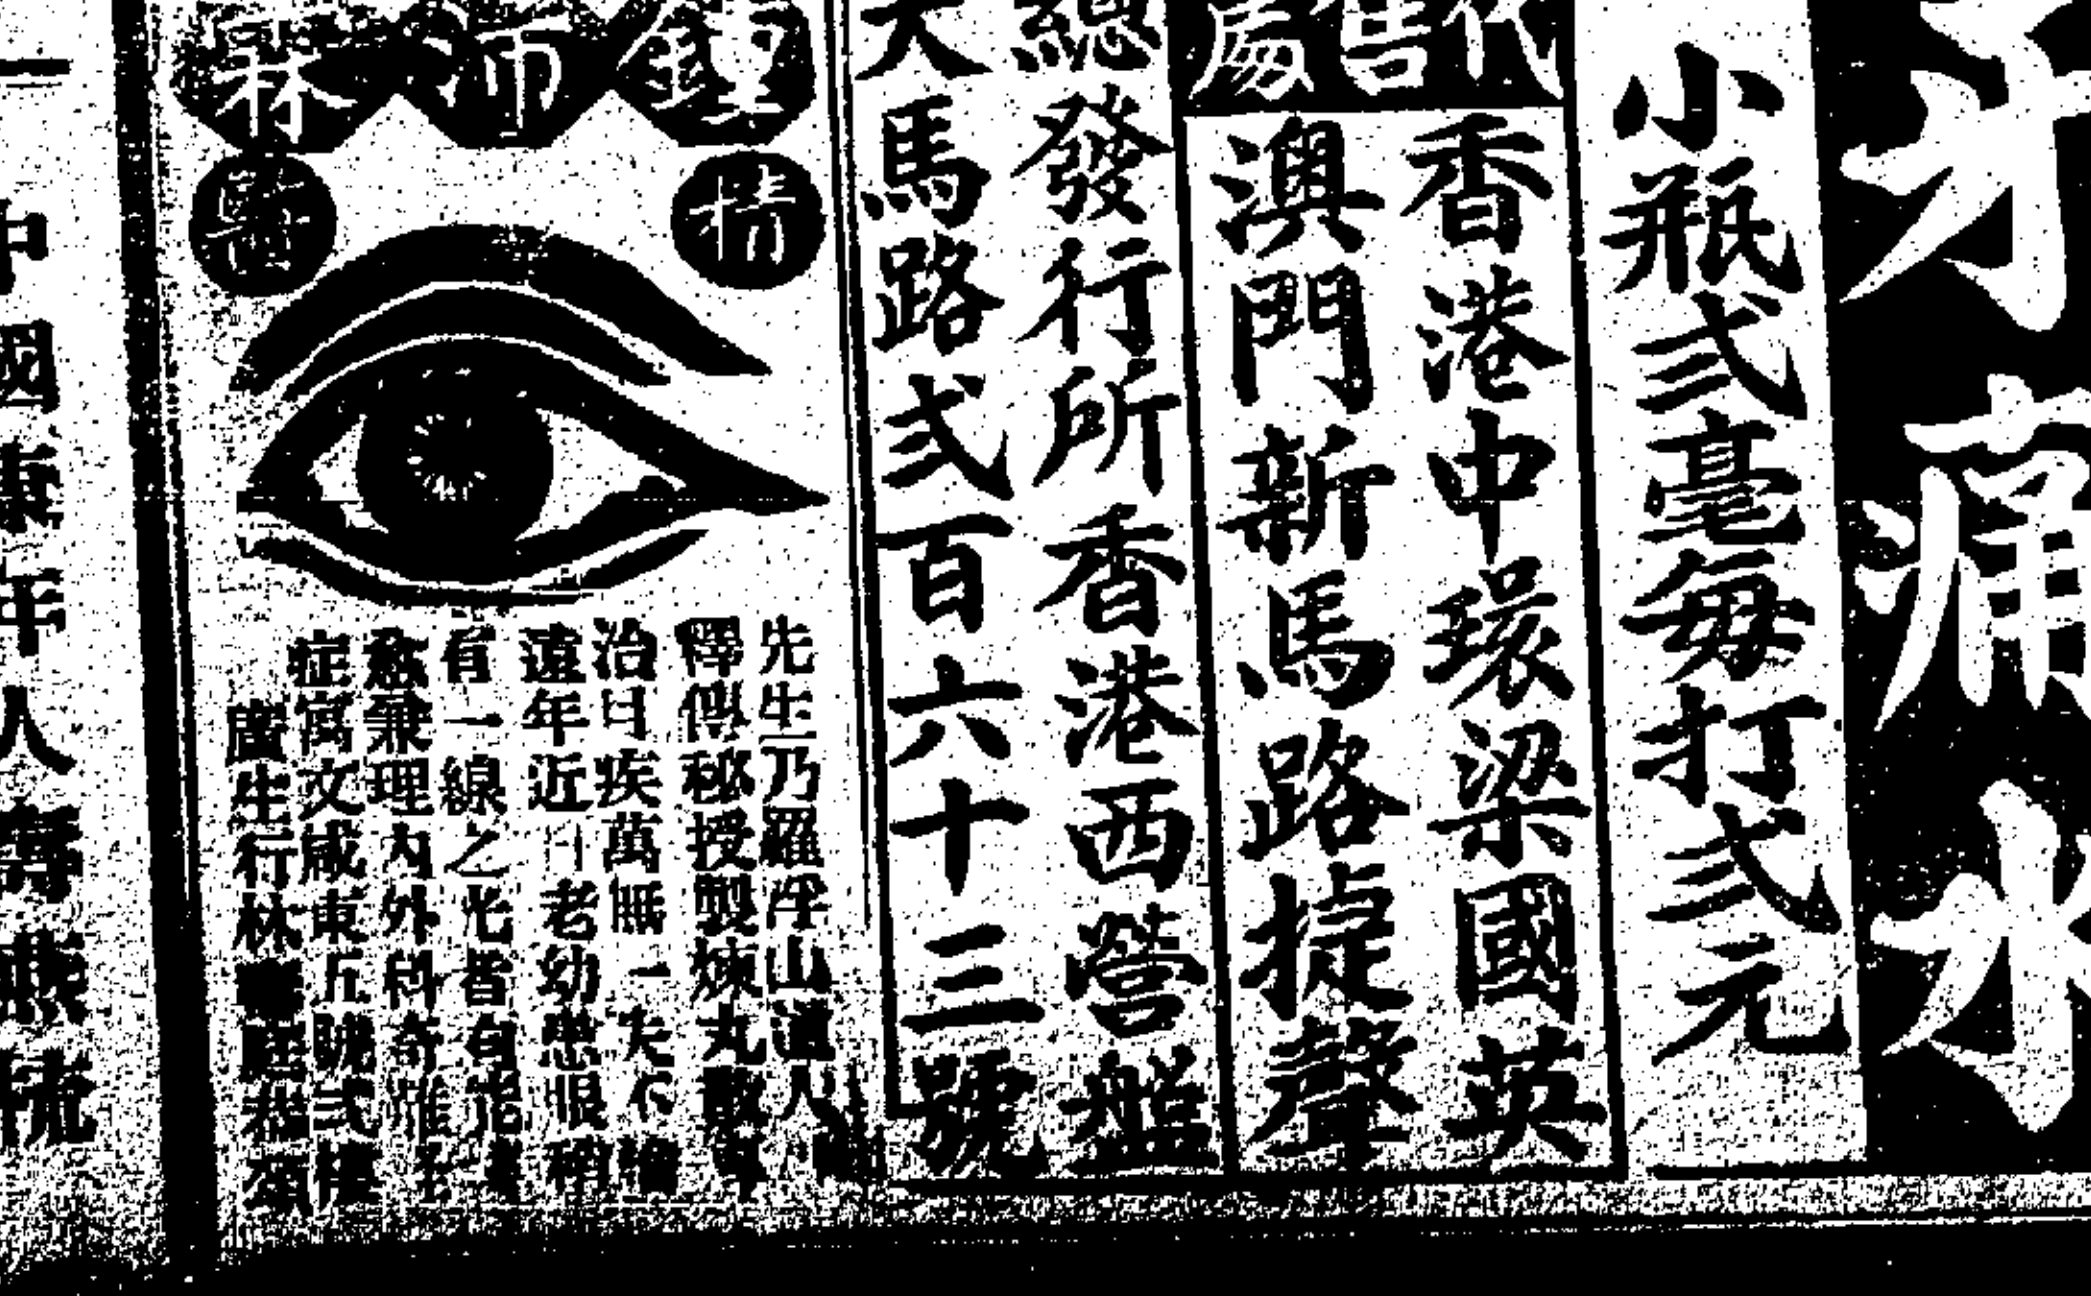 痛
小瓶弍毫每打弍元
代售處
香港中環梁國英
澳門新馬路捷聲
總發行所香港西營盤
大馬路弍百六十三號
鍾沛林
精醫
先生乃羅浮山道人
釋傳秘授製煉丸散
治目疾萬無一失不論
遠年近日老幼患眼稍
有一線之光皆自能
愈兼理內外科奇難
症寓文咸東五號弍樓
廣生行林
中國康年人壽燕梳